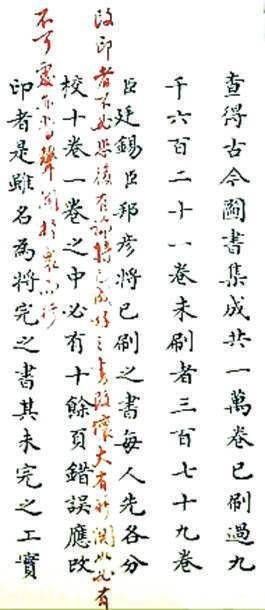 查得古今圖書集成共一萬卷已刷過九
千六百二十一卷未刷者三百七十九卷
臣廷錫臣邦彥將已刷之書每人先各分
改印者不必恐後有論將已成好之書改壞大有所關
校十卷一卷之中必有十餘頁錯誤應改
不可處
印者是雖名為將完之書其未完之工實